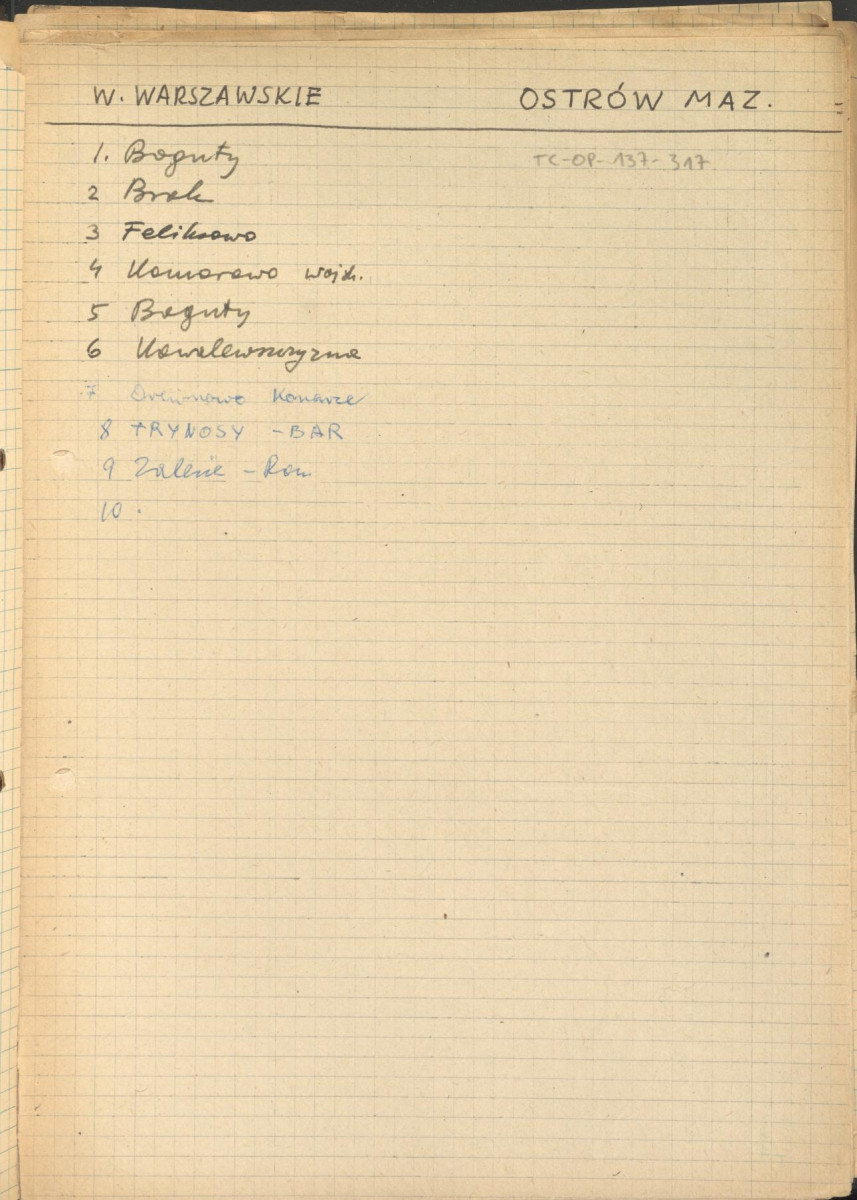 W. WARSZAWSKIE OSTRÓW MAZ.
1. Boguty TC-OP-137-317
2 Brok
3 Feliksowo
4 Komorowo wojsk.
5 Boguty
6 Kowalewszczyzna
7 Drewnowo Konarze
8 TRYNOSY - BAR
9 Zalesie - Rom
10.